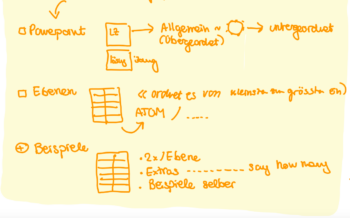 Powerpoint LZ Allgemein ~ untergeordnet
(Übergeordnet)
Ebenen << ordnet es von kleinsten zu grössten en)
ATOM / .....
Beispiele
• 2x/Ebene
• Extras ------- say how many
• Beispiele selber